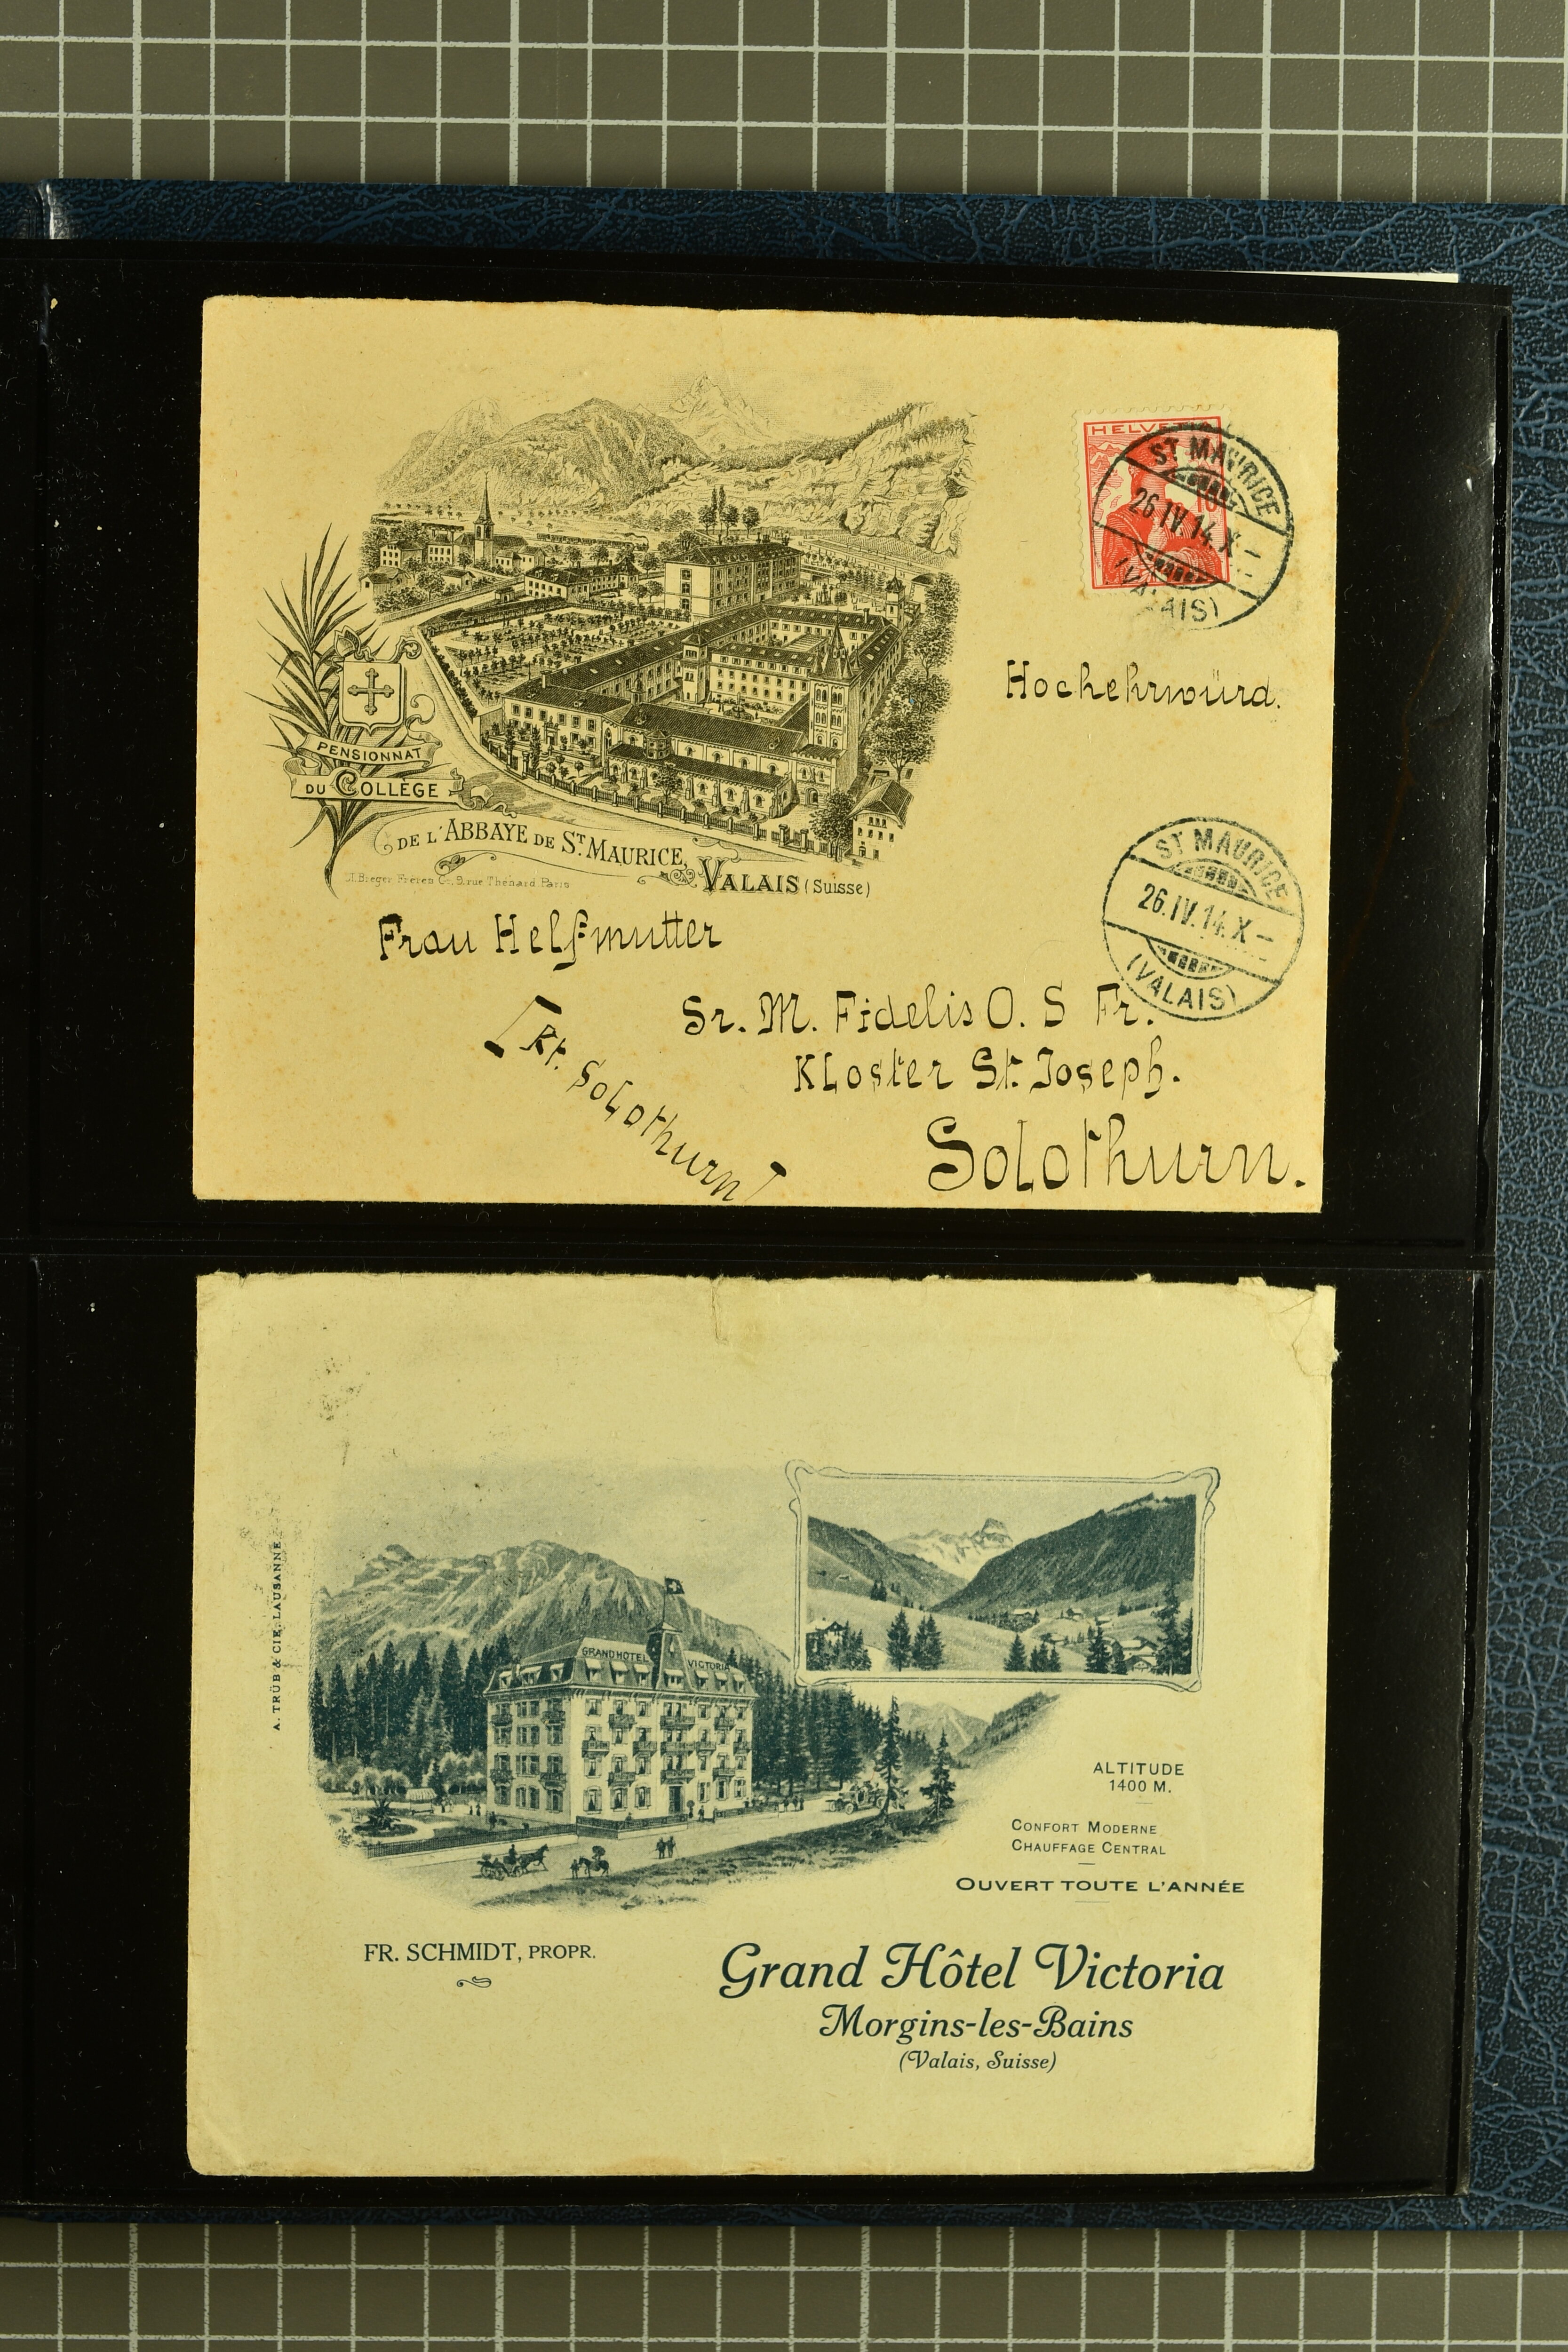 HELVETIA
10
ST MAURICE
26.IV.14.X-
(VALAIS)
Hochehrwürd.
PENSIONNAT
DU COLLÈGE
DE L'ABBAYE DE ST. MAURICE,
VALAIS (Suisse)
Frères 9, rue Thénard Paris
ST MAURICE
26.IV.14.X-
(VALAIS)
Frau Helfmutter
Sr. M. Fidelis O. S Fr.
Kloster St. Joseph.
Solothurn.
[Kt. Solothurn]
A. TRÜB & CIE. LAUSANNE.
GRAND HOTEL VICTORIA
ALTITUDE
1400 M.
CONFORT MODERNE
CHAUFFAGE CENTRAL
OUVERT TOUTE L'ANNÉE
FR. SCHMIDT, PROPR.
Grand Hôtel Victoria
Morgins-les-Bains
(Valais, Suisse)